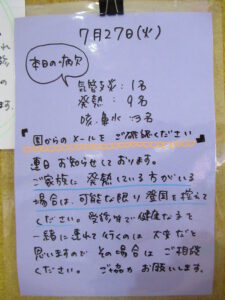 7月27日(火)
本日の病欠
気管支炎：1名
発熱：9名
咳・鼻水：3名
園からのメールをご確認ください
連日お知らせしております。
ご家族に発熱している方がいる
場合は、可能な限り登園を控えて
ください。受診等で健康な子も
一緒に連れて行くのは大変だと
思いますので その場合は ご相談
ください。 ご協力お願いします。